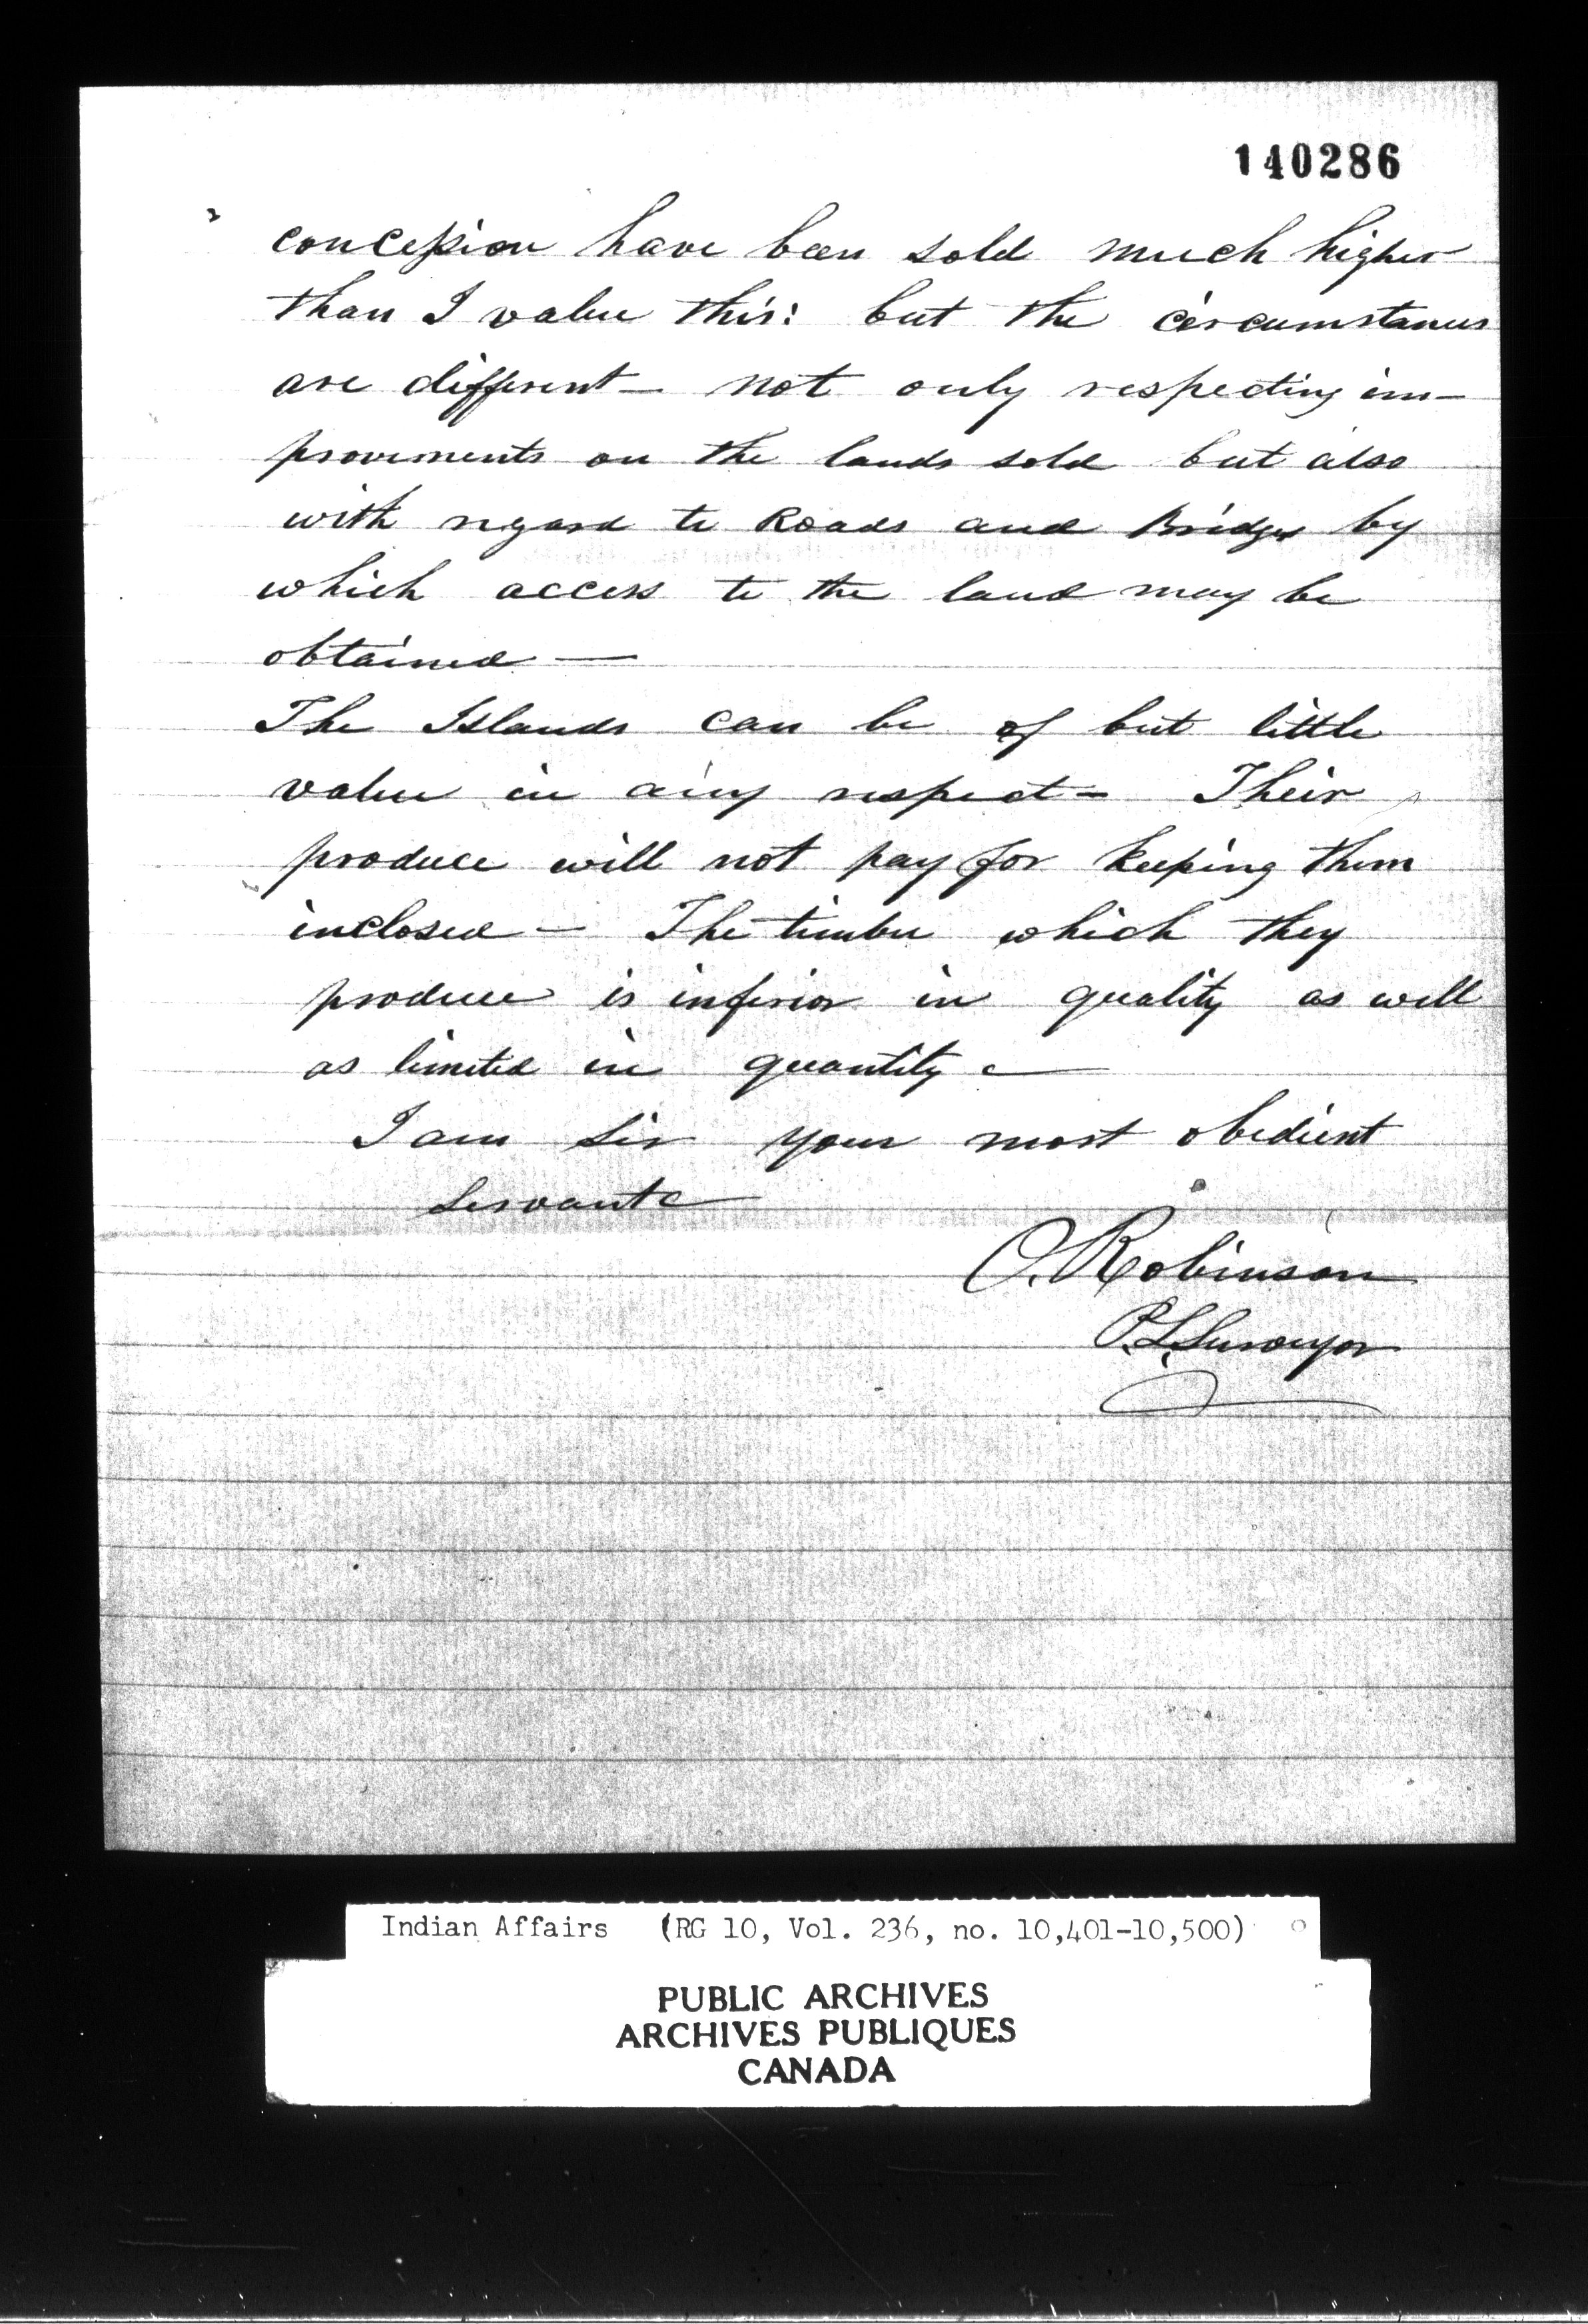 140286
concession have been sold much higher
than I value this: but the circumstances
are different — not only respecting im-
provements on the lands sold but also
with regard to Roads and Bridges by
which access to the land may be
obtained —
The Islands can be of but little
value in any respect — Their
produce will not pay for keeping them
inclosed — The timber which they
produce is inferior in quality as well
as limited in quantity —
I am Sir your most obedient
Servant
O. Robinson
P. L. Surveyor
Indian Affairs (RG 10, Vol. 236, no. 10,401-10,500)
PUBLIC ARCHIVES
ARCHIVES PUBLIQUES
CANADA